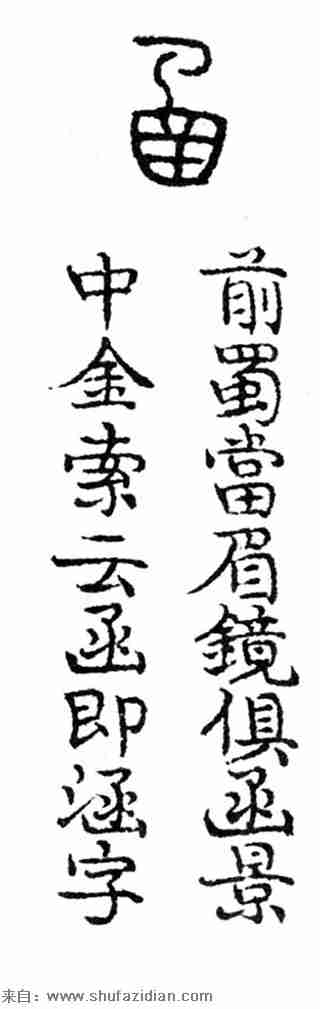 函
前蜀當眉鏡俱函景
中金索云函即涵字
来自：www.shufazidian.com